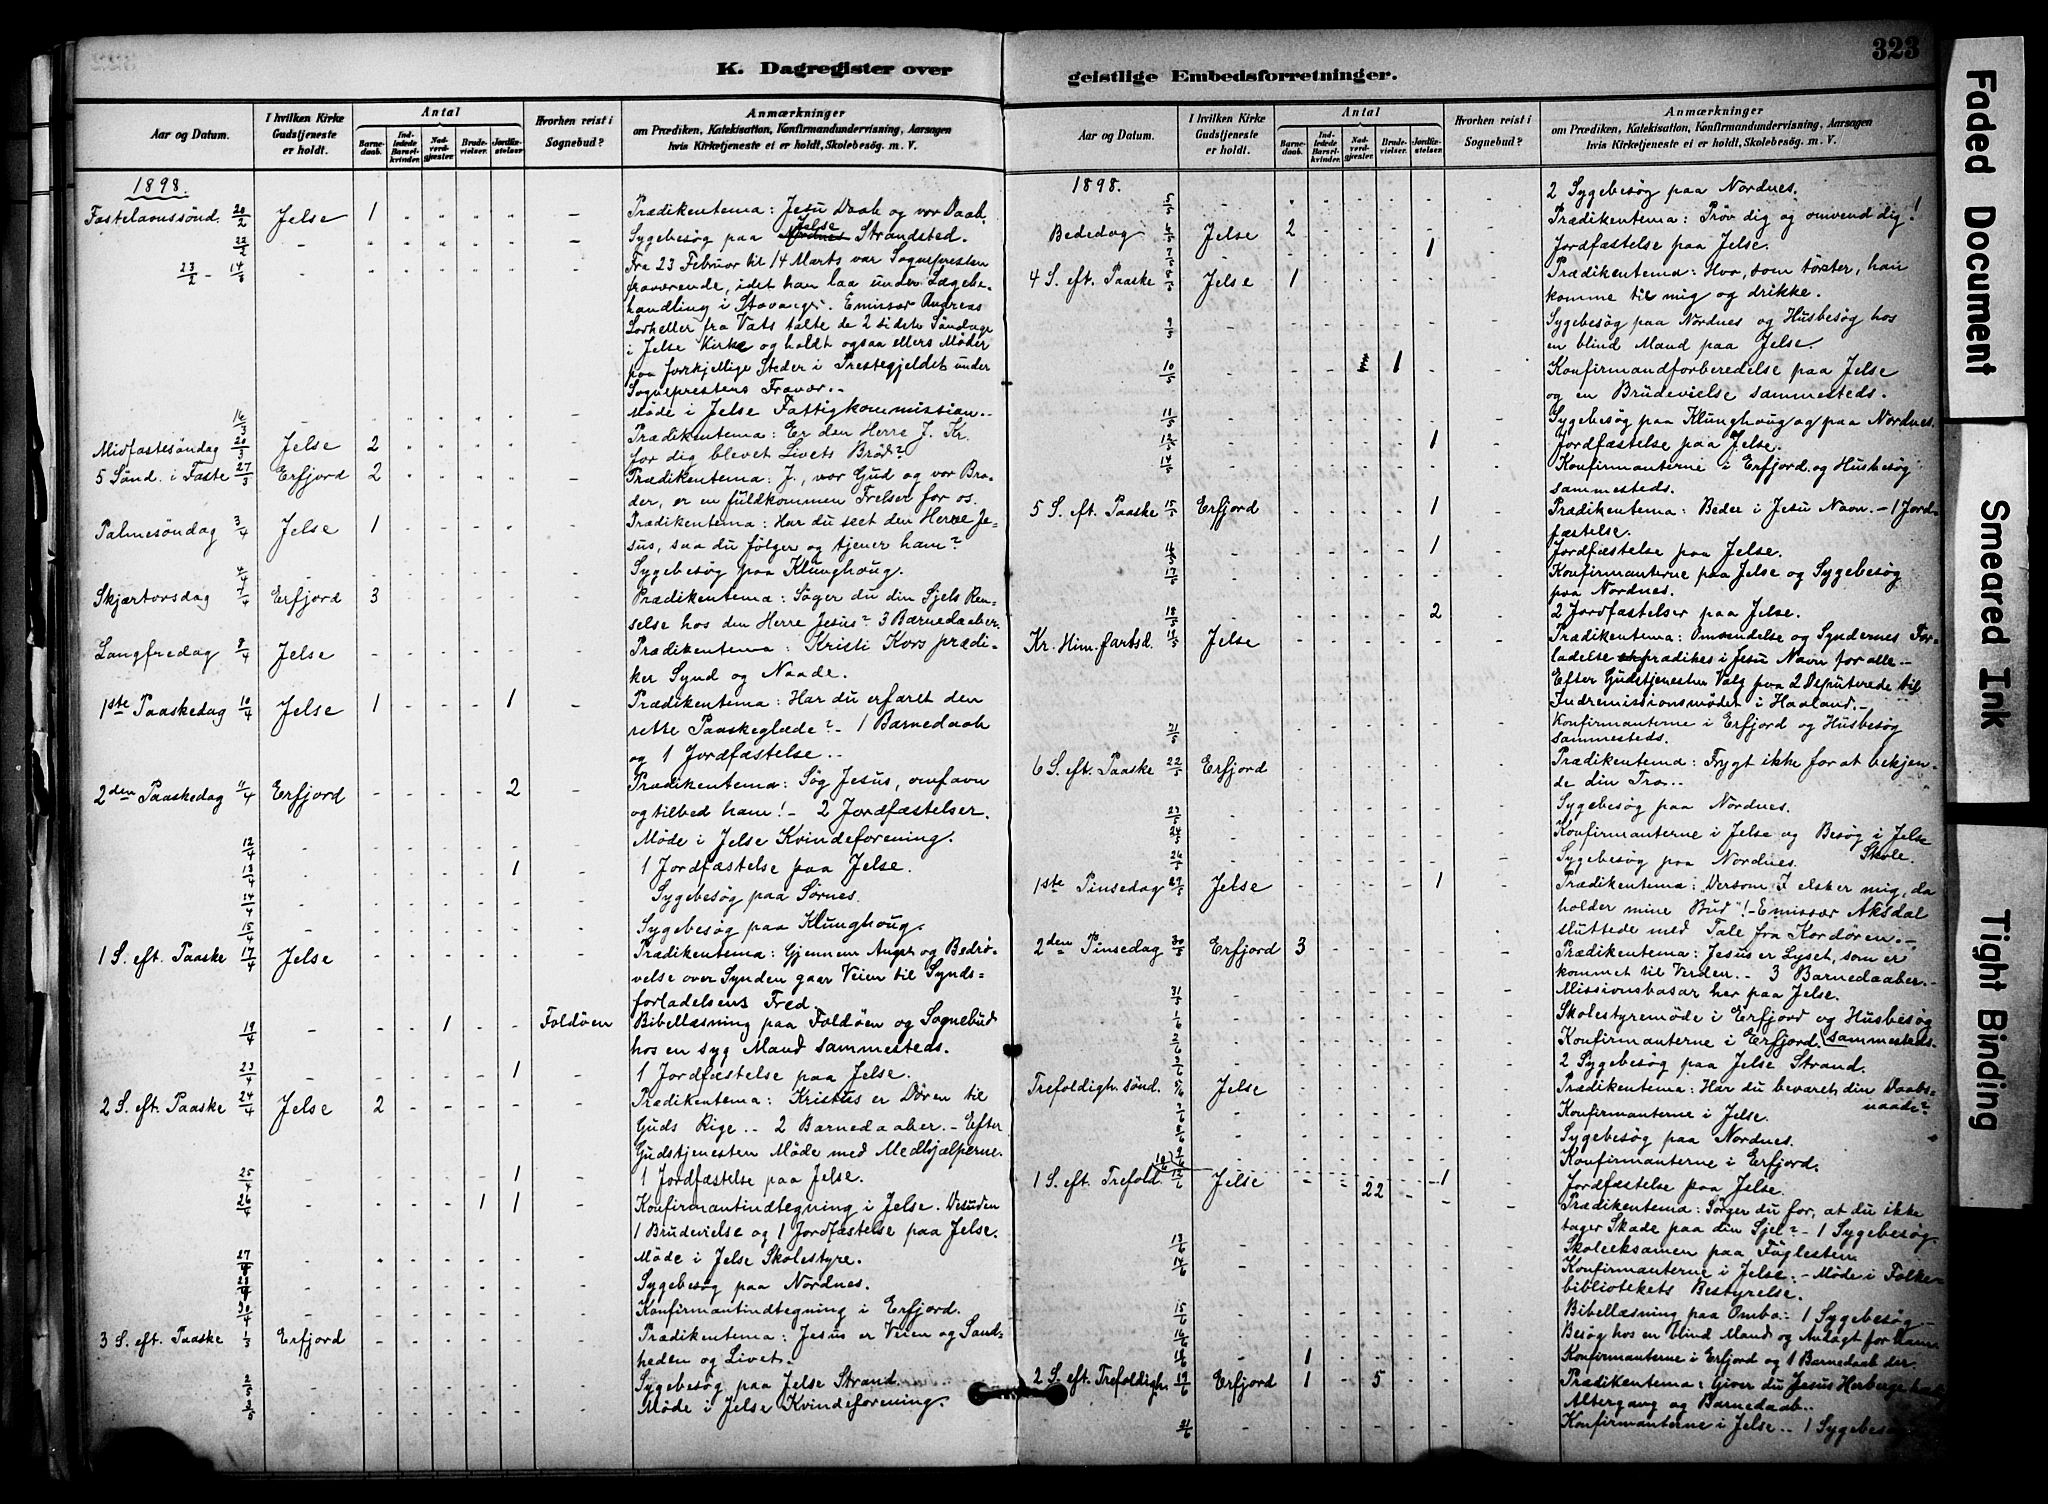 K. Dagregister over
Aar og Datum.
I hvilken Kirke Gudstjeneste er holdt.
Antal
Barnedaab.
Indledede Barselkvinder.
Nadverdgjester.
Brudevielser.
Jordfæstelser.
Hvorhen reist i Sognebud?
Anmærkninger
om Prædiken, Katekisation, Konfirmandundervisning, Aarsagen
hvis Kirketjeneste ei er holdt, Skolebesøg. m. V.
1898.
Fastelavnssønd. 20/2 Jelse 1 " " " " - Prædikentema: Jesu Daab og vor Daab.
22/2 - " " " " " - Sygebesøg paa Jelse Strandsted.
23/2 - 14/3 - " " " " " - Fra 23 Februar til 14 Marts var Sognepresten
fraværende, idet han laa under Lægebe-
handling i Stavanger. Emissær Andreas
Lorkeller fra Vats talte de 2 sidste Søndage
i Jelse Kirke og holdt ogsaa ellers Møder
paa forskjellige Steder i Prestegjeldet under
Sogneprestens Fravær.-
16/3 - Møde i Jelse Fattigkommission.-
Midfastesøndag 20/3 Jelse 2 Prædikentema: Er den Herre J. Kr.
for dig blevet Livets Brød?
5 Sønd. i Faste 27/3 Erfjord 2 Prædikentema: J., vor Gud og vor Bro-
der, er en fuldkommen Frelser for os.
Palmesøndag 3/4 Jelse 1 Prædikentema: Har du seet den Herre Je-
sus, saa du følger og tjener ham?
4/4 - Sygebesøg paa Klunghoug.
Skjærtorsdag 7/4 Erfjord 3 Prædikentema: Søger du din Sjels Ren-
selse hos den Herre Jesus? 3 Barnedaaber.
Langfredag 8/4 Jelse Prædikentema: Kristi Kors prædi-
ker Synd og Naade.
1ste Paaskedag 10/4 Jelse 1 - - - 1 - Prædikentema: Har du erfaret den
rette Paaskeglæde? - 1 Barnedaab
og 1 Jordfæstelse.-
2den Paaskedag 11/4 Erfjord - - - - 2 - Prædikentema: Søg Jesus, omfavn
og tilbed ham! - 2 Jordfæstelser.
12/4 - Møde i Jelse Kvindeforening.
13/4 - - - - - 1 - 1 Jordfæstelse paa Jelse.
14/4 - Sygebesøg paa Sørnes.
15/4 - Sygebesøg paa Klunghoug.
1 S. eft. Paaske 17/4 Jelse Prædikentema: Gjennem Angst og Bedrø-
velse over Synden gaar Veien til Synds-
forladelsens Fred.
19/4 - - - 1 - - Foldøen Bibellæsning paa Foldøen og Sognebud
hos en syg Mand sammesteds.
23/4 - - - - - 1 - 1 Jordfæstelse paa Jelse.
2 S. eft. Paaske 24/4 Jelse 2 - - - - - Prædikentema: Kristus er Døren til
Guds Rige.- 2 Barnedaaber.- Efter
Gudstjenesten Møde med Medhjælperne.
25/4 - - - - - 1 - 1 Jordfæstelse paa Jelse.
26/4 - - - - 1 1 - Konfirmantindtegning i Jelse. Desuden
1 Brudevielse og 1 Jordfæstelse paa Jelse.
27/4 - Møde i Jelse Skolestyre.
28/4 - Sygebesøg paa Nordnes.
30/4 - Konfirmantindtegning i Erfjord.
3 S. eft. Paaske 1/5 Erfjord Prædikentema: Jesus er Veien og Sand-
heden og Livet.-
2/5 - Sygebesøg paa Jelse Strand.
3/5 - Møde i Jelse Kvindeforening.
323
geistlige Embedsforretninger.
Aar og Datum.
I hvilken Kirke Gudstjeneste er holdt.
Antal
Barnedaab.
Indledede Barselkvinder.
Nadverdgjester.
Brudevielser.
Jordfæstelser.
Hvorhen reist i Sognebud?
Anmærkninger
om Prædiken, Katekisation, Konfirmandundervisning, Aarsagen
hvis Kirketjeneste ei er holdt, Skolebesøg. m. V.
1898.
5/5 - 2 Sygebesøg paa Nordnes.
Bededag 6/5 Jelse 2 - - - - - Prædikentema: Prøv dig og omvend dig!
7/5 - - - - - 1 - Jordfæstelse paa Jelse.
4 S. eft. Paaske 8/5 Jelse 1 - - - - - Prædikentema: Hvo, som tørster, han
komme til mig og drikke.
9/5 - Sygebesøg paa Nordnes og Husbesøg hos
en blind Mand paa Jelse.
10/5 - - - 1 - - Konfirmandforberedelse paa Jelse
og en Brudevielse sammesteds.
11/5 - Sygebesøg paa Klunghoug og paa Nordnes.
13/5 - - - - - 1 - Jordfæstelse paa Jelse.
14/5 - Konfirmanterne i Erfjord og Husbesøg
sammesteds.
5 S. eft. Paaske 15/5 Erfjord - - - - 1 - Prædikentema: Beder i Jesu Navn.- 1 Jord-
fæstelse.
16/5 - - - - - 1 - Jordfæstelse paa Jelse.
17/5 - Konfirmanterne paa Jelse og Sygebesøg
paa Nordnes.
18/5 - - - - - 2 - 2 Jordfæstelser paa Jelse.
Kr. Him. fartsd. 19/5 Jelse Prædikentema: Omvendelse og Syndernes For-
ladelse prædikes i Jesu Navn for alle.-
Efter Gudstjenesten Valg paa 2 Deputerede til
Indremissionsmødet i Haaland.-
21/5 - Konfirmanterne i Erfjord og Husbesøg
sammesteds.
6 S. eft. Paaske 22/5 Erfjord Prædikentema: Frygt ikke for at bekjen-
de din Tro.-
23/5 - Sygebesøg paa Nordnes.
24/5 - Konfirmanterne i Jelse og Besøg i Jelse
Skole.
26/5 - Sygebesøg paa Nordnes.
1ste Pinsedag 29/5 Jelse - - - - 1 - Prædikentema: Dersom I elsker mig, da
holder mine Bud"! - Emissær Aksdal
sluttede med Tale fra Kordøren.-
2den Pinsedag 30/5 Erfjord 3 - - - - - Prædikentema: Jesus er Lyset, som er
kommet til Verden.- 3 Barnedaaber.-
31/5 - Missionsbasar her paa Jelse.
1/6 - Skolestyremøde i Erfjord og Husbesøg
sammesteds.
2/6 - Konfirmanterne i Erfjord.
3/6 - 2 Sygebesøg paa Jelse Strand.
Trefoldigh. sønd. 5/6 Jelse Prædikentema: Har du bevaret din Daabs-
naade?
7/6 - Konfirmanterne i Jelse.
8/6 - Sygebesøg paa Nordnes.
9/6 - Konfirmanterne i Erfjord.
10/6 - - - - - 1 Jordfæstelse paa Jelse.
1 S. eft. Trefold. 12/6 Jelse - - 22 - - - Prædikentema: Sørger du for, at du ikke
tager Skade paa din Sjel? - 1 Sygebesøg.
13/6 - Skoleeksamen paa Føglesten.
14/6 - Konfirmanterne i Jelse.- Møde i Folke-
bibliotekets Bestyrelse.
15/6 - Bibellæsning paa Ombo: 1 Sygebesøg.-
16/6 - Besøg hos en blind Mand og Avlagt for ham
18/6 - 1 - - - - - Konfirmanterne i Erfjord og 1 Barnedaab der.
2 S. eft. Trefoldigh. 19/6 Erfjord 1 - 5 - - - Prædikentema: Giver du Jesus Herberge
Altergang og Barnedaab.-
21/6 - Konfirmanterne i Jelse.- 1 Sygebesøg
Faded Document
Smeared Ink
Tight Binding